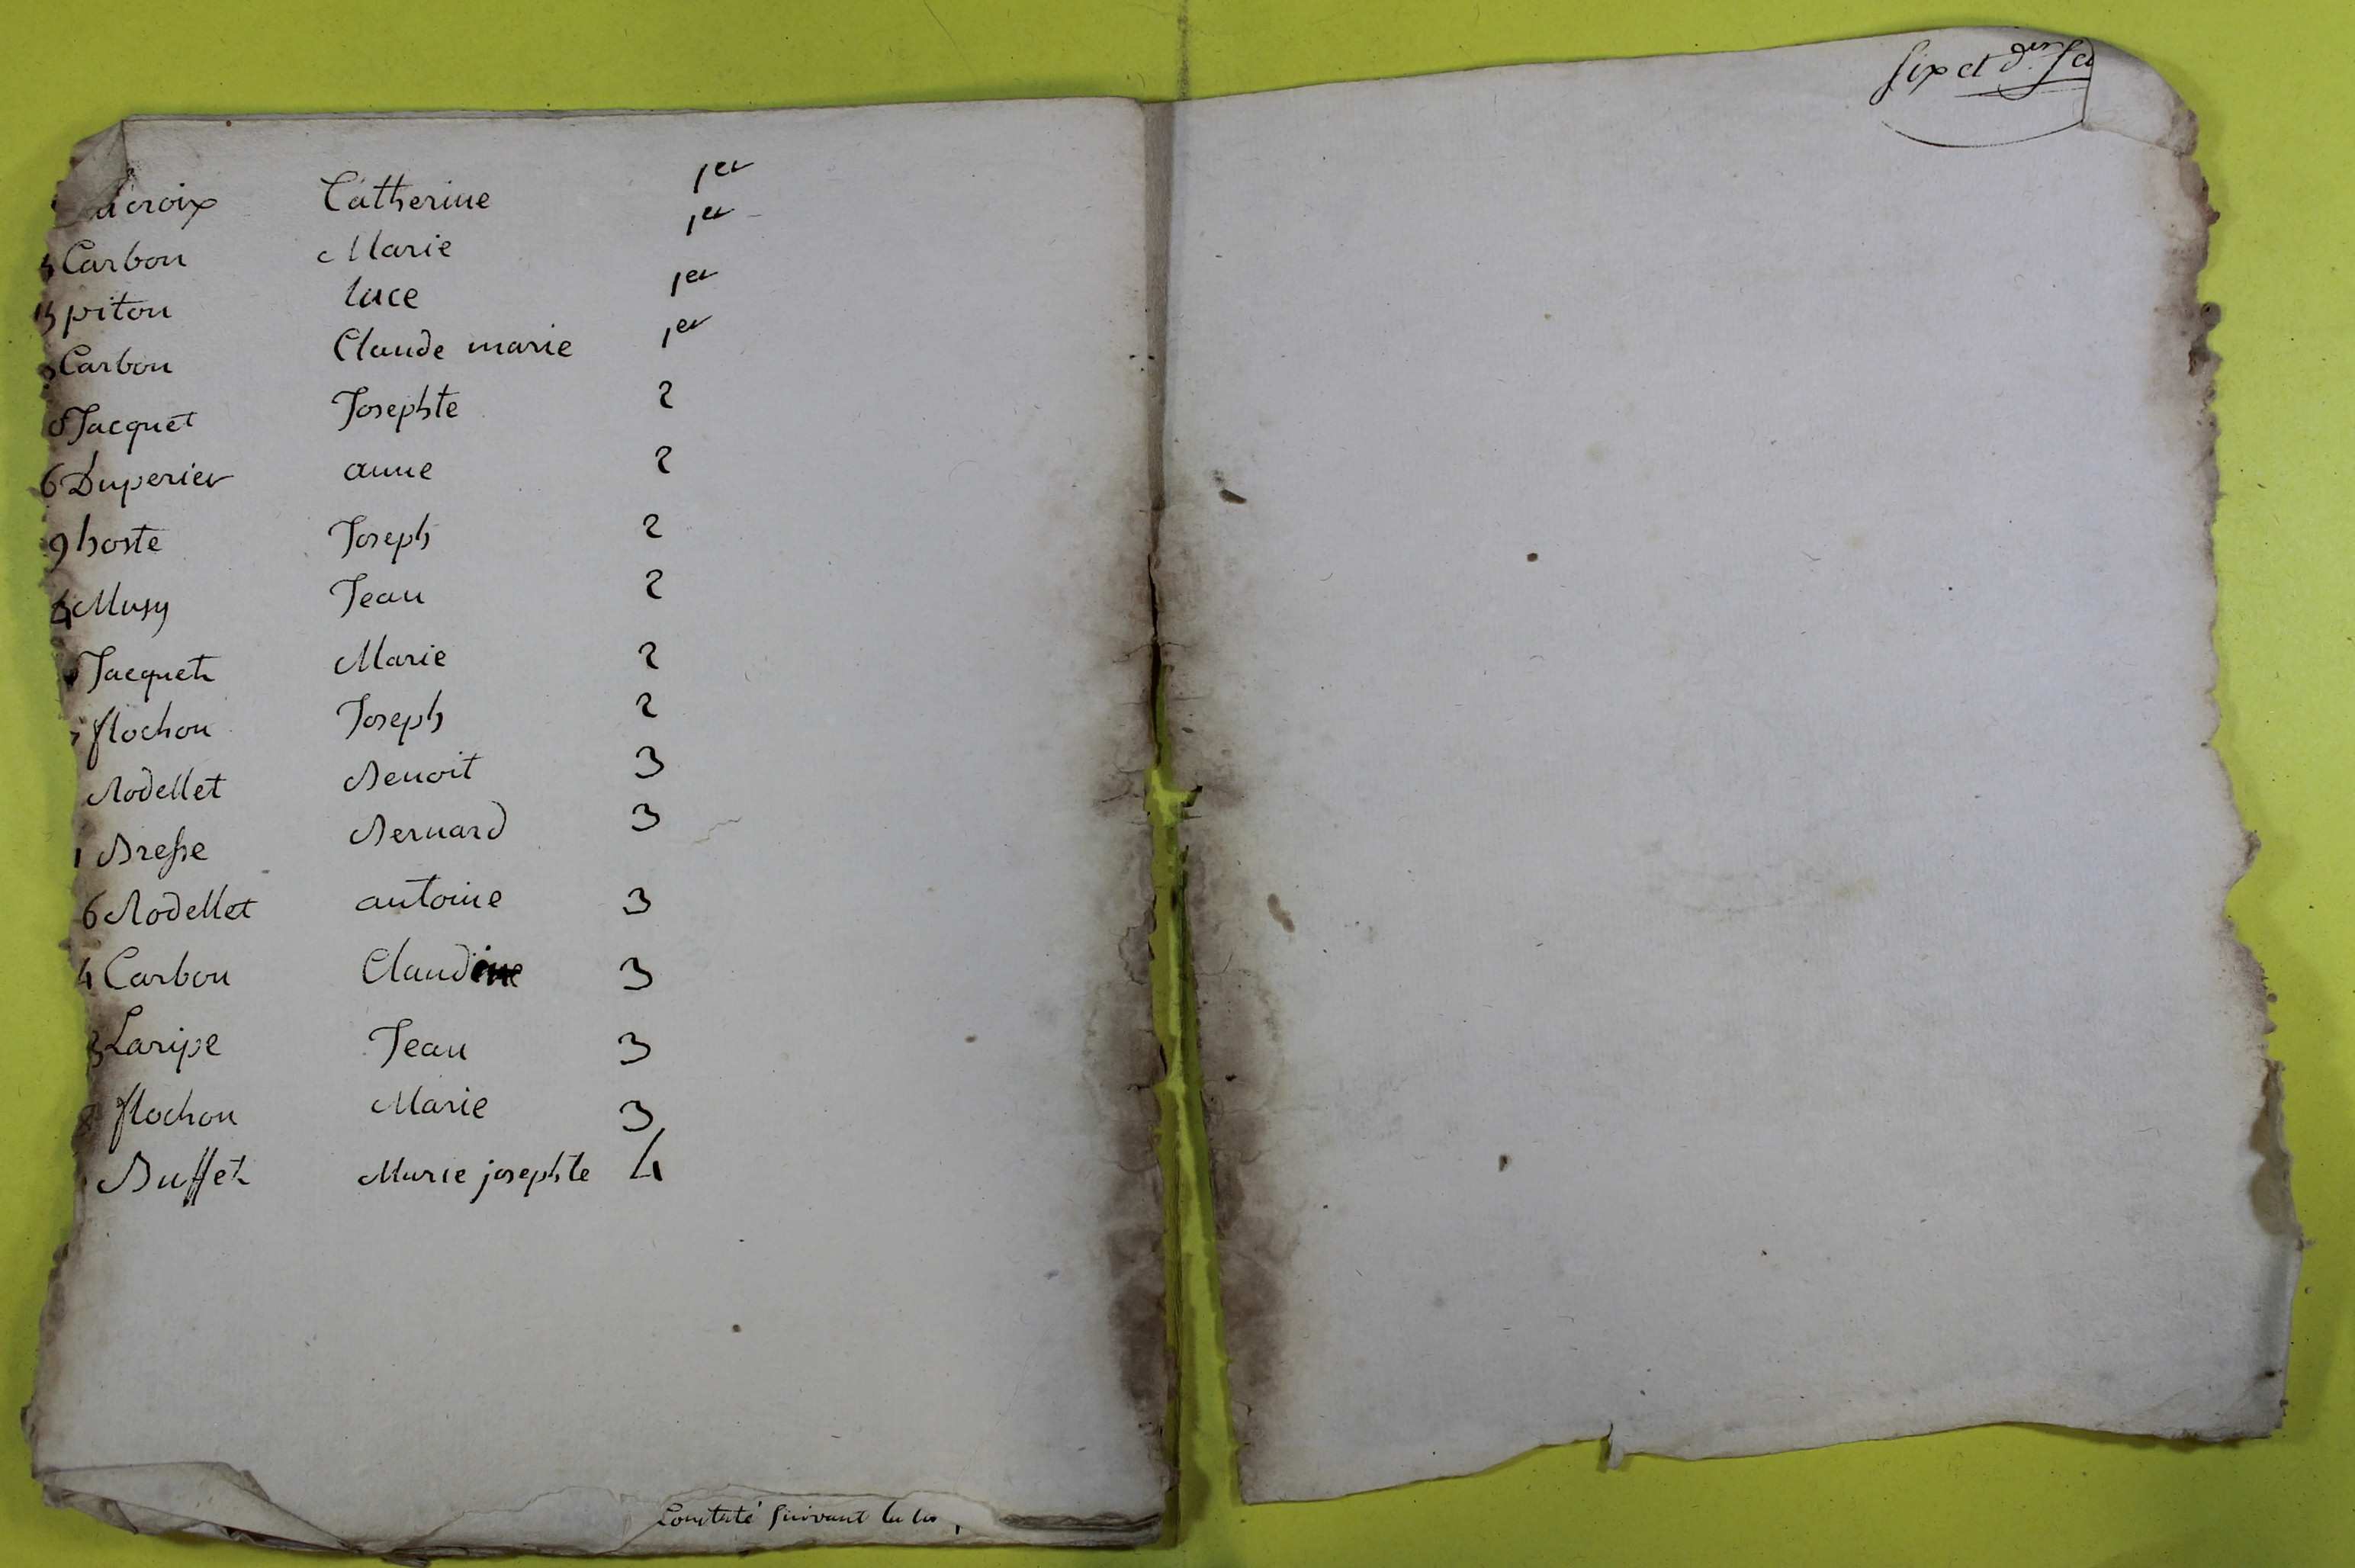 Lacroix Catherine 1er
Carbon Marie 1er
piton luce 1er
Carbon Claude marie 1er
8 Jacquet Josephte 2
6 Duperier anne 2
9 hoste Joseph 2
4 Musy Jean 2
Jacquet Marie 2
flochon Joseph 2
Rodellet Benoit 3
1 Bresse Bernard 3
6 Rodellet antoine 3
4 Carbon Claudine 3
3 Laripe Jean 3
8 flochon Marie 3
Buffet Marie josephte 4
suivant la loi
Six et der